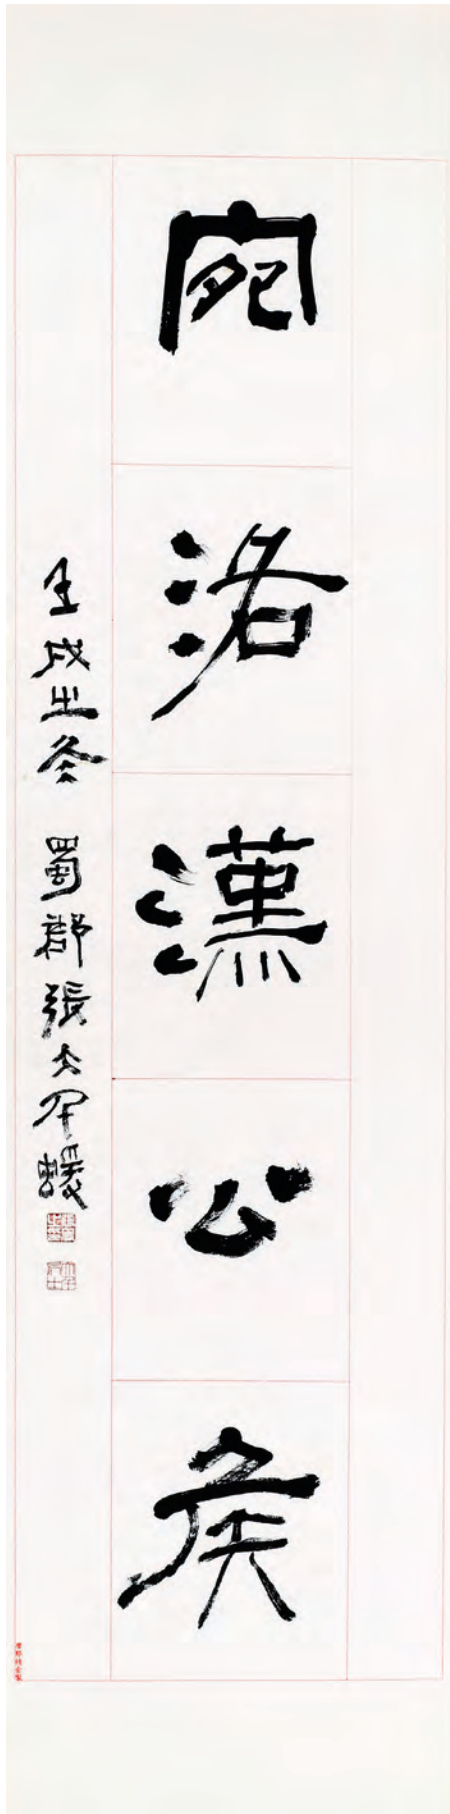 宛洛漢公侯
壬戌之冬 蜀郡張大千爰